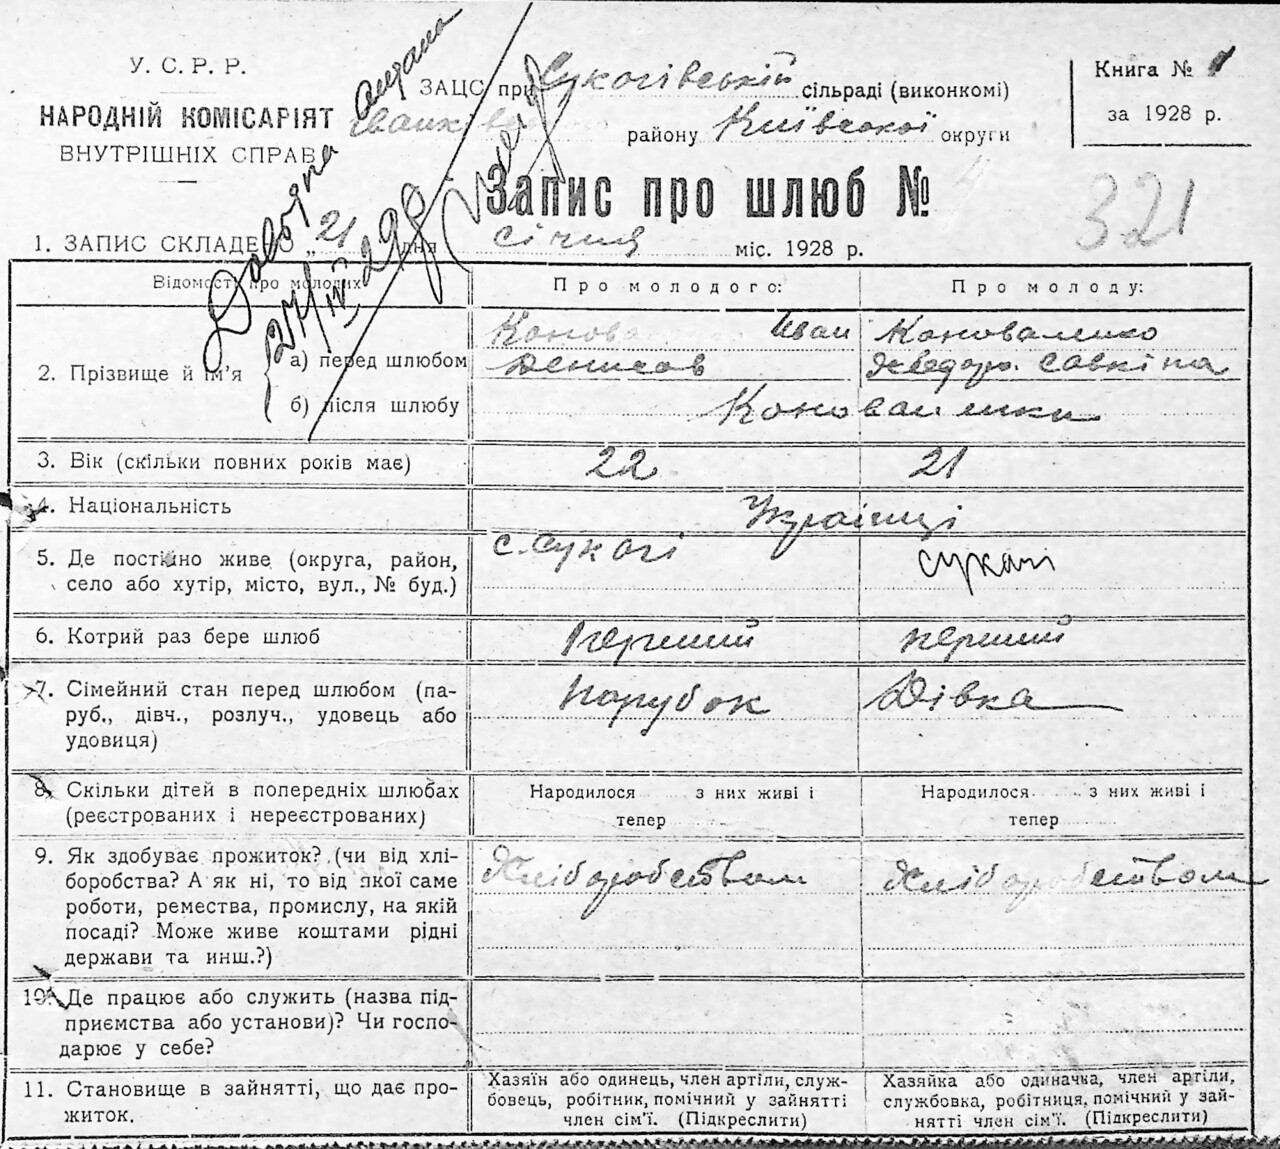 У. С. Р. Р.
НАРОДНІЙ КОМІСАРІЯТ
ВНУТРІШНІХ СПРАВ
ЗАЦС при Сукачівській сільраді (виконкомі)
району Київської округи
Книга № 1
за 1928 р.
Запис про шлюб № 4
321
1. ЗАПИС СКЛАДЕНО „21 дня січня міс. 1928 р.
Довідка видана
Відомості про молодих
Про молодого:
Про молоду:
2. Прізвище й ім'я
а) перед шлюбом
Іван
Денисов
Коноваленко
Савківна
б) після шлюбу
Коноваленки
3. Вік (скільки повних років має) 22 21
4. Національність Українці
5. Де постійно живе (округа, район,
село або хутір, місто, вул., № буд.)
с. Сукачі
Сукачі
6. Котрий раз бере шлюб Перший перший
7. Сімейний стан перед шлюбом (па-
руб., дівч., розлуч., удовець або
удовиця)
Парубок
Дівка
8. Скільки дітей в попередніх шлюбах
(реєстрованих і нереєстрованих)
Народилося з них живі і
тепер
Народилося з них живі і
тепер
9. Як здобуває прожиток? (чи від хлі-
боробства? А як ні, то від якої саме
роботи, ремества, промислу, на якій
посаді? Може живе коштами рідні
держави та инш.?)
Хліборобством
Хліборобством
10. Де працює або служить (назва під-
приємства або установи)? Чи госпо-
дарює у себе?
11. Становище в зайнятті, що дає про-
житок.
Хазяїн або одинець, член артіли, служ-
бовець, робітник, помічний у зайнятті
член сім'ї. (Підкреслити)
Хазяйка або одиначка, член артіли,
службовка, робітниця, помічний у зай-
нятті член сім'ї. (Підкреслити)